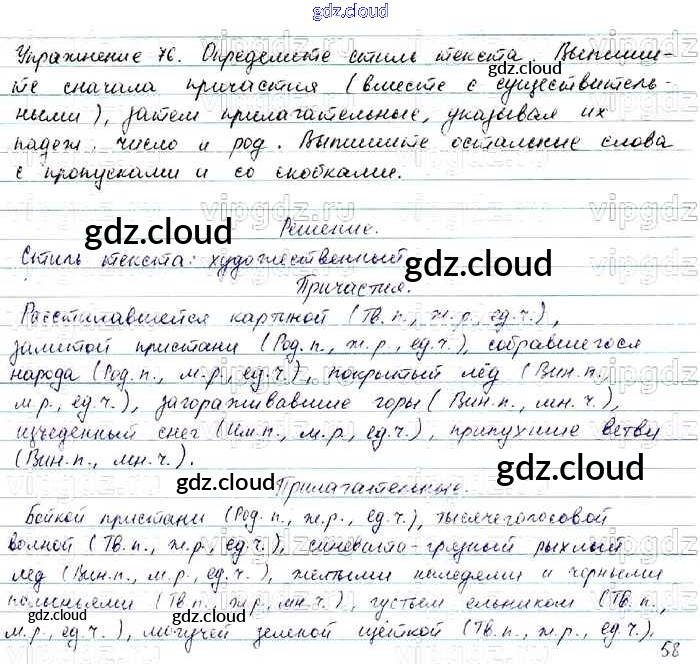 gdz.cloud
Упражнение 76. Определите стиль текста. Выпиши-
те сначала причастия (вместе с существитель-
ными), затем прилагательные, указывая их
падеж, число и род. Выпишите остальные слова
с пропусками и со скобками.
Решение.
Стиль текста: художественный.
Причастия.
Расстилавшейся картиной (Тв.п., ж.р., ед.ч.),
залитой пристани (Род.п., ж.р., ед.ч.), собравшегося
народа (Род.п., м.р., ед.ч.), покрытый лёд (Вин.п.,
м.р., ед.ч.), загораживавшие горы (Вин.п., мн.ч.),
изъеденный снег (Им.п., м.р., ед.ч.), припухшие ветви
(Вин.п., мн.ч.).
Прилагательные.
Бойкой пристани (Род.п., ж.р., ед.ч.), тысячеголосовой
волной (Тв.п., ж.р., ед.ч.), синевато-грязный рыхлый
лёд (Вин.п., м.р., ед.ч.), желтыми наледями и чёрными
полыньями (Тв.п., ж.р., мн.ч.), густым ельником (Тв.п.,
м.р., ед.ч.), могучей зеленой щёткой (Тв.п., ж.р., ед.ч.).
58